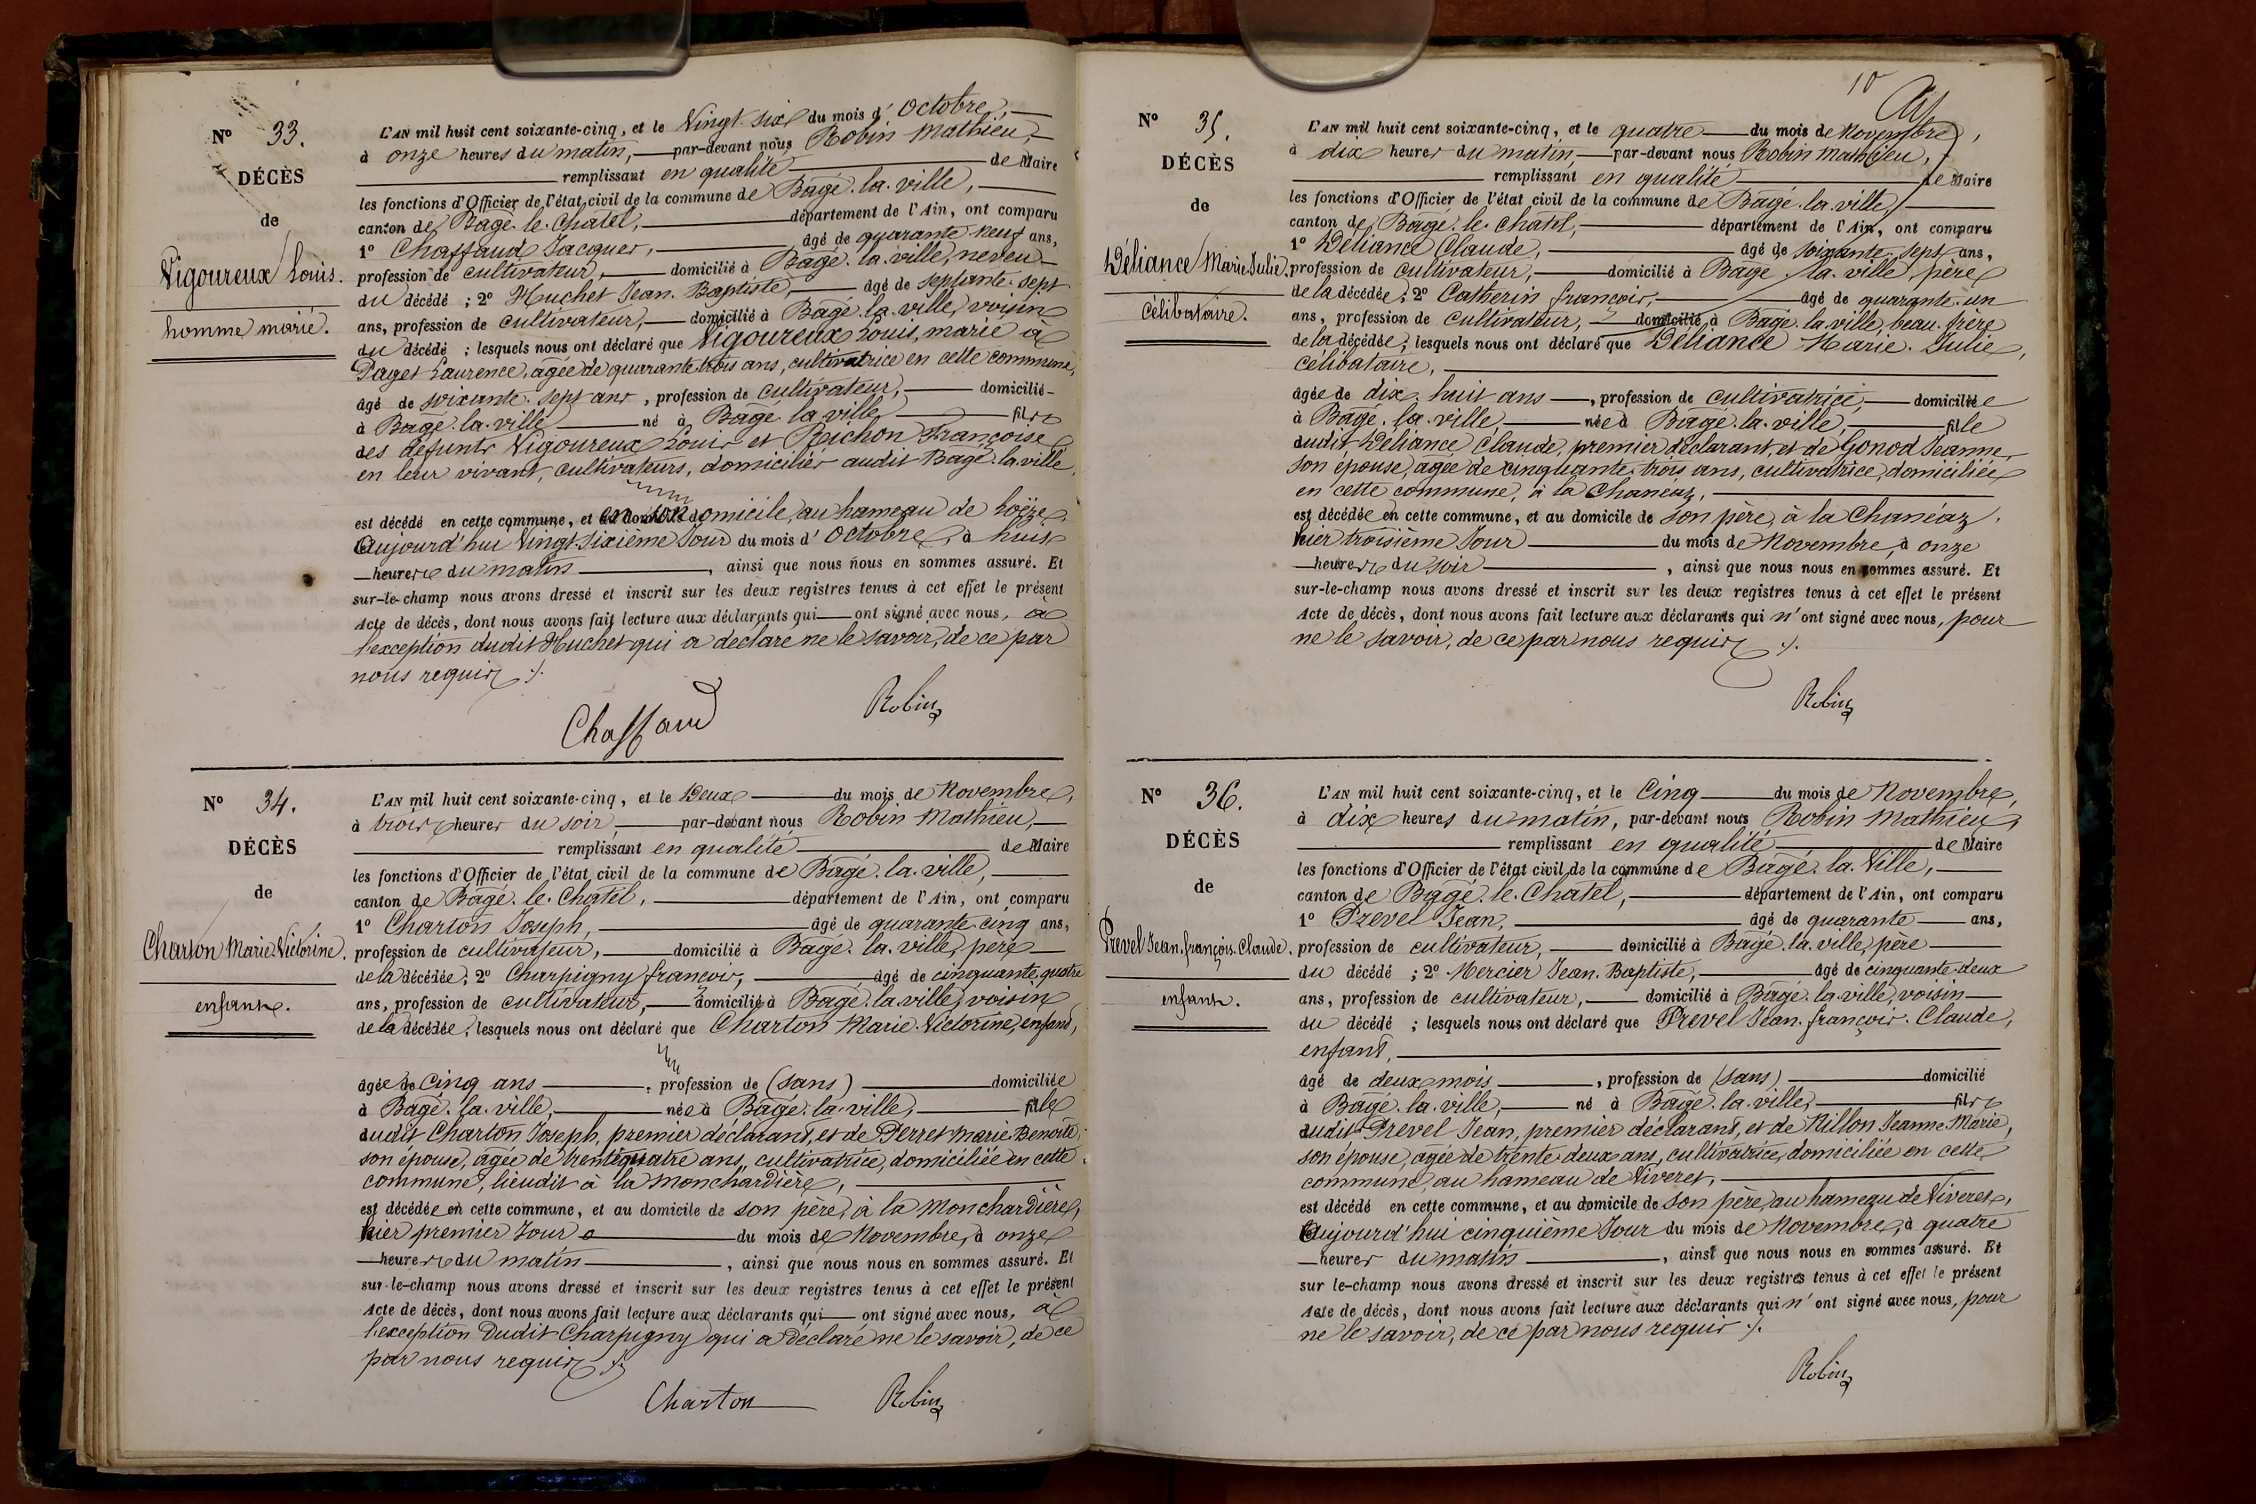 N° 33.
DÉCÈS
de
Vigoureux Louis.
homme marié.
L'AN mil huit cent soixante-cinq, et le Vingt-six du mois d'Octobre,
à onze heures du matin, par-devant nous Robin Mathieu,
remplissant en qualité de Maire
les fonctions d'Officier de l'état civil de la commune de Bagé-la-ville,
canton de Bagé-le-Chatel, département de l'Ain, ont comparu
1° Chaffaud Jacques, âgé de quarante-neuf ans,
profession de cultivateur, domicilié à Bagé-la-ville, neveu
du décédé ; 2° Huchet Jean-Baptiste, âgé de septante-sept
ans, profession de cultivateur, domicilié à Bagé-la-ville, voisin
du décédé ; lesquels nous ont déclaré que Vigoureux Louis, marié à
Paget Laurence, agée de quarante trois ans, cultivatrice en cette commune,
âgé de soixante-sept ans, profession de cultivateur, domicilié
à Bagé-la-ville né à Bagé la ville fils
des défunts Vigoureux Louis et Reichon Françoise
en leur vivant, cultivateurs, domiciliés audit Bagé-la-ville,
est décédé en cette commune, et en son domicile, au hameau de Loëze,
Aujourd'hui Vingt-Sixième Jour du mois d'Octobre, à huit
heures du matin, ainsi que nous nous en sommes assuré. Et
sur-le-champ nous avons dressé et inscrit sur les deux registres tenus à cet effet le présent
Acte de décès, dont nous avons fait lecture aux déclarants qui ont signé avec nous, à
l'exception dudit Huchet qui a déclaré ne le savoir, de ce par
nous requis ./.
Chaffaud Robin
N° 34.
DÉCÈS
de
Charton Marie Victorine.
enfant.
L'AN mil huit cent soixante-cinq, et le Deux du mois de Novembre,
à trois heures du soir, par-devant nous Robin Mathieu,
remplissant en qualité de Maire
les fonctions d'Officier de l'état civil de la commune de Bagé-la-ville,
canton de Bagé-le-Chatel, département de l'Ain, ont comparu
1° Charton Joseph, âgé de quarante-cinq ans,
profession de cultivateur, domicilié à Bagé-la-ville, père
de la décédée ; 2° Charpigny françois, âgé de cinquante quatre
ans, profession de cultivateur, domicilié à Bagé-la-ville, voisin
de la décédée, lesquels nous ont déclaré que Charton Marie-Victorine, enfant,
âgée de Cinq ans, profession de (sans) domiciliée
à Bagé-la-ville, née à Bagé-la-ville, fille
dudit Charton Joseph, premier déclarant, et de Perret Marie Benoite,
son épouse, agée de trente quatre ans, cultivatrice, domiciliée en cette
commune, lieudit à la Monchardière,
est décédée en cette commune, et au domicile de son père, à la Monchardière,
hier premier Jour du mois de Novembre, à onze
heures du matin, ainsi que nous nous en sommes assuré. Et
sur-le-champ nous avons dressé et inscrit sur les deux registres tenus à cet effet le présent
Acte de décès, dont nous avons fait lecture aux déclarants qui ont signé avec nous, à
l'exception Dudit Charpigny qui a Déclaré ne le savoir, de ce
par nous requis ./.
Charton Robin
10
N° 35.
DÉCÈS
de
Déliance Marie Julie.
célibataire.
L'AN mil huit cent soixante-cinq, et le quatre du mois de Novembre,
à dix heures du matin, par-devant nous Robin Mathieu,
remplissant en qualité de Maire
les fonctions d'Officier de l'état civil de la commune de Bagé-la-ville,
canton de Bagé-le-Chatel, département de l'Ain, ont comparu
1° Déliance Claude, âgé de soixante-sept ans,
profession de cultivateur, domicilié à Bagé-la-ville, père
de la décédée ; 2° Catherin françois, âgé de quarante-un
ans, profession de cultivateur, domicilié à Bagé-la-ville, beau-frère
de la décédée, lesquels nous ont déclaré que Déliance Marie-Julie,
célibataire,
âgée de dix-huit ans, profession de cultivatrice, domiciliée
à Bagé-la-ville, née à Bagé-la-ville, fille
dudit Déliance Claude, premier déclarant, et de Gonod Jeanne,
son épouse, agée de cinquante-trois ans, cultivatrice, domiciliée
en cette commune, à la Chanéaz,
est décédée en cette commune, et au domicile de son père, à la Chanéaz,
hier troisième Jour du mois de Novembre, à onze
heures du soir, ainsi que nous nous en sommes assuré. Et
sur-le-champ nous avons dressé et inscrit sur les deux registres tenus à cet effet le présent
Acte de décès, dont nous avons fait lecture aux déclarants qui n'ont signé avec nous, pour
ne le savoir, de ce par nous requis ./.
Robin
N° 36.
DÉCÈS
de
Prevel Jean-françois-Claude.
enfant.
L'AN mil huit cent soixante-cinq, et le Cinq du mois de Novembre,
à dix heures du matin, par-devant nous Robin Mathieu,
remplissant en qualité de Maire
les fonctions d'Officier de l'état civil de la commune de Bagé-la-Ville,
canton de Bagé-le-Chatel, département de l'Ain, ont comparu
1° Prevel Jean, âgé de quarante ans,
profession de cultivateur, domicilié à Bagé-la-ville, père
du décédé ; 2° Mercier Jean-Baptiste, âgé de cinquante-deux
ans, profession de cultivateur, domicilié à Bagé-la-ville, voisin
du décédé ; lesquels nous ont déclaré que Prevel Jean-françois-Claude,
enfant,
âgé de deux mois, profession de (sans) domicilié
à Bagé-la-ville, né à Bagé-la-ville, fils
dudit Prevel Jean, premier déclarant, et de Nillon Jeanne Marie,
son épouse, agée de trente-deux ans, cultivatrice, domiciliée en cette
commune, au hameau de Viveret,
est décédé en cette commune, et au domicile de son père, au hameau de Viveret,
Aujourd'hui cinquième Jour du mois de Novembre, à quatre
heures du matin, ainsi que nous nous en sommes assuré. Et
sur le-champ nous avons dressé et inscrit sur les deux registres tenus à cet effet le présent
Acte de décès, dont nous avons fait lecture aux déclarants qui n'ont signé avec nous, pour
ne le savoir, de ce par nous requis ./.
Robin